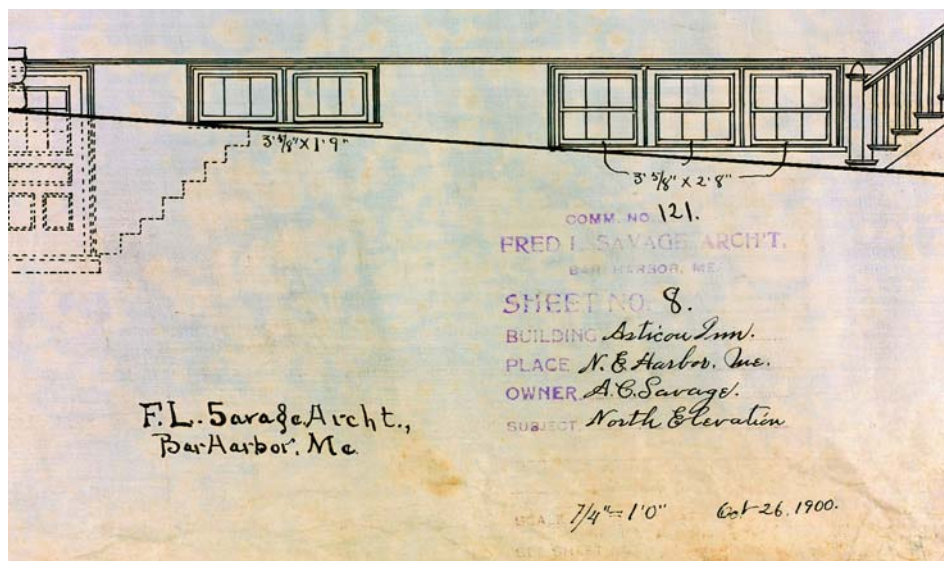 3'⅝" X 1'9"
3' ⅝" X 2' 8"
COMM. NO. 121.
FRED L. SAVAGE ARCH'T.
BAR HARBOR, ME.
SHEET NO. 8.
BUILDING Asticou Inn.
PLACE N.E. Harbor, Me.
OWNER A.C. Savage.
SUBJECT North Elevation
F.L. Savage Archt.,
Bar Harbor, Me
SCALE 1/4" = 1'0" Oct 26, 1900.
SEE SHEET